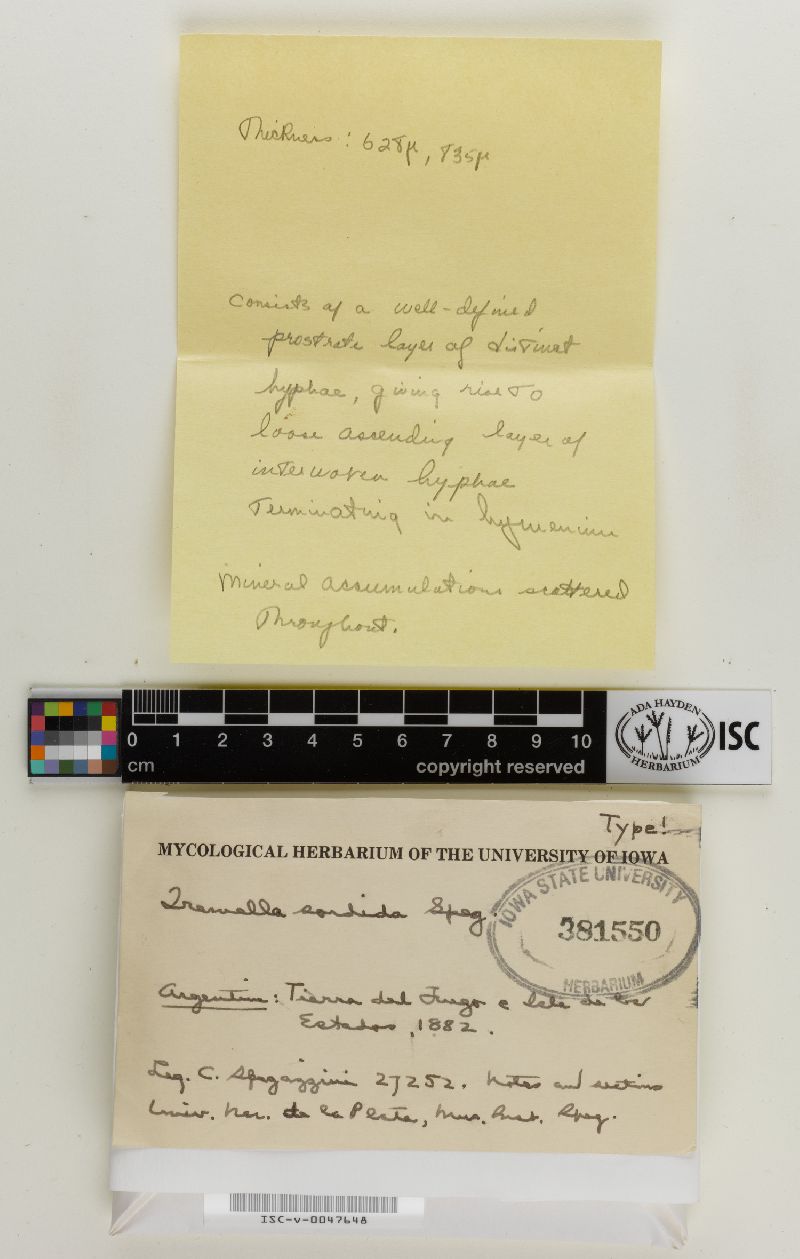 Thickness: 628µ, 835µ
Consists of a well-defined
prostrate layer of distinct
hyphae, giving rise to
loose ascending layer of
interwoven hyphae
Terminating in hymenium
Mineral accumulations scattered
Throughout.
0 1 2 3 4 5 6 7 8 9 10
cm
copyright reserved
ADA HAYDEN
HERBARIUM
ISC
Type!
MYCOLOGICAL HERBARIUM OF THE UNIVERSITY OF IOWA
Tremella sordida Speg.
IOWA STATE UNIVERSITY
381550
HERBARIUM
Argentina: Tierra del Fuego e Isla de los
Estados, 1882.
Leg. C. Spegazzini 27252. Notes and sections
Univ. Nac. de la Plata, Mus. Inst. Speg.
ISC-v-0047648